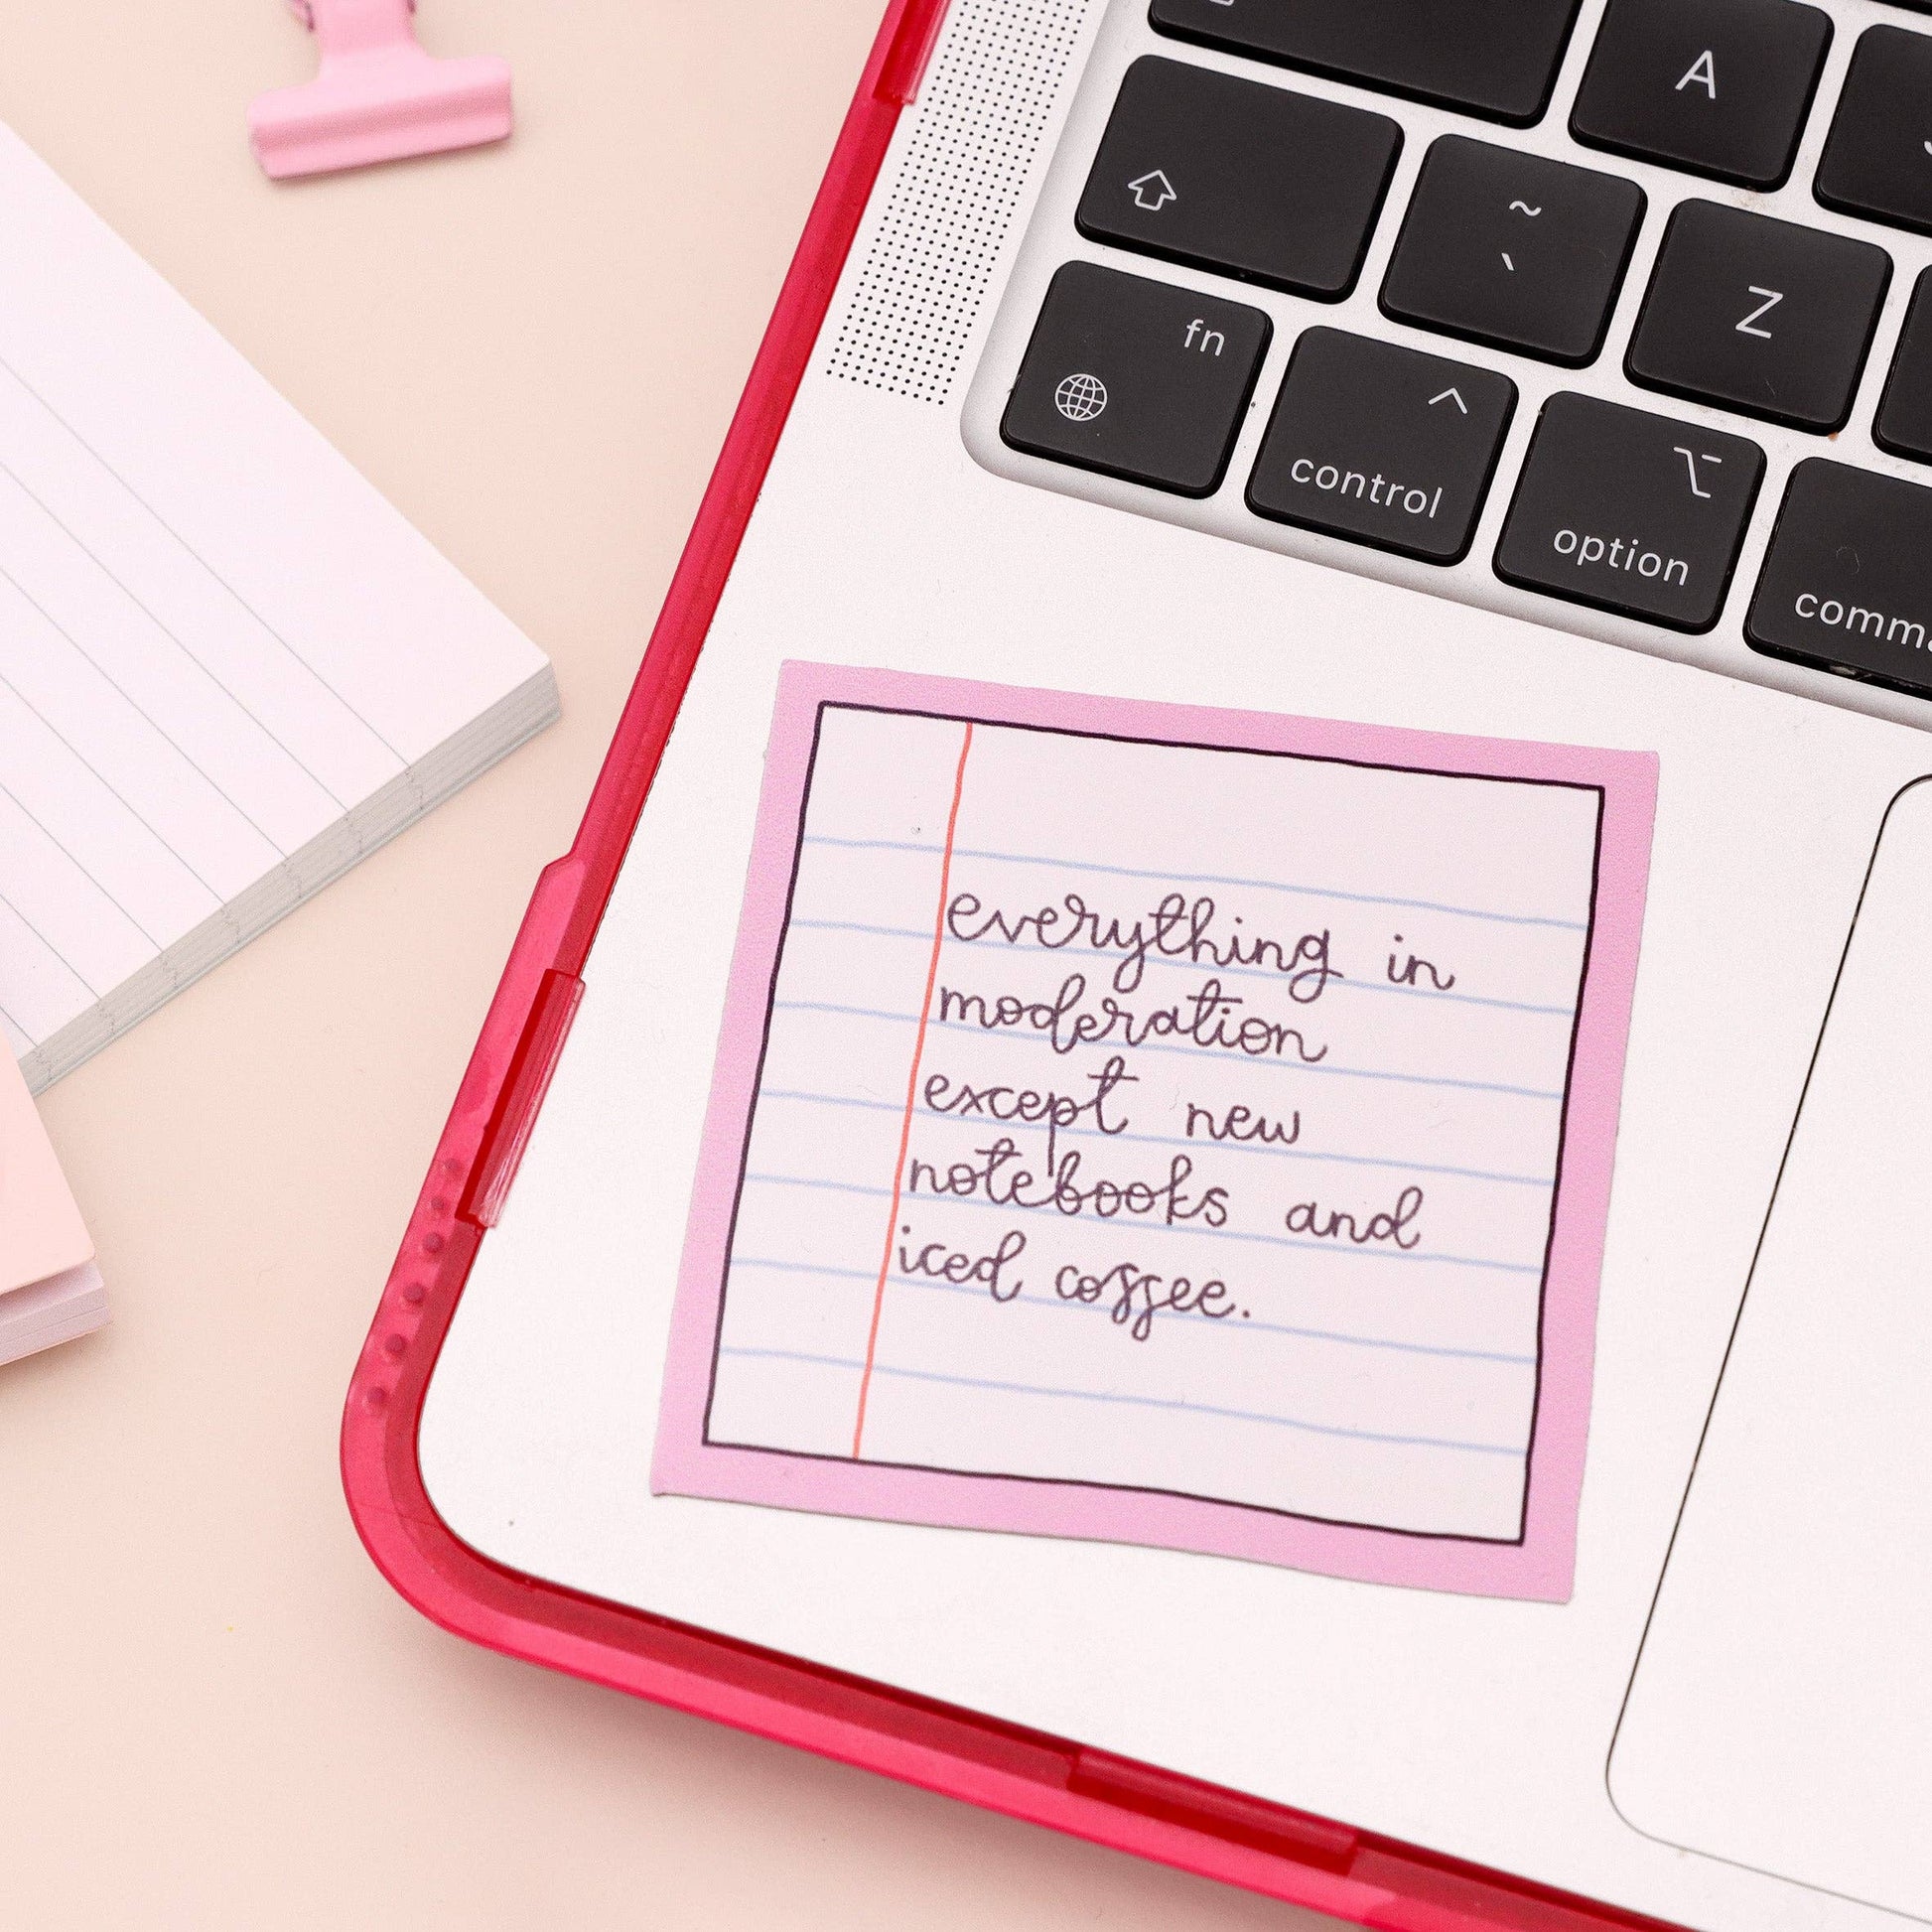 A
~
`
Z
fn
control
option
comma
everything in
moderation
except new
notebooks and
iced coffee.